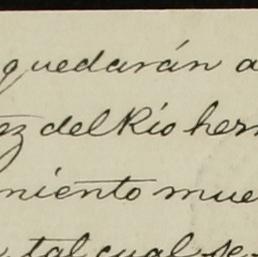 quedarán a
ez del Río her
miento mue
tal cual se